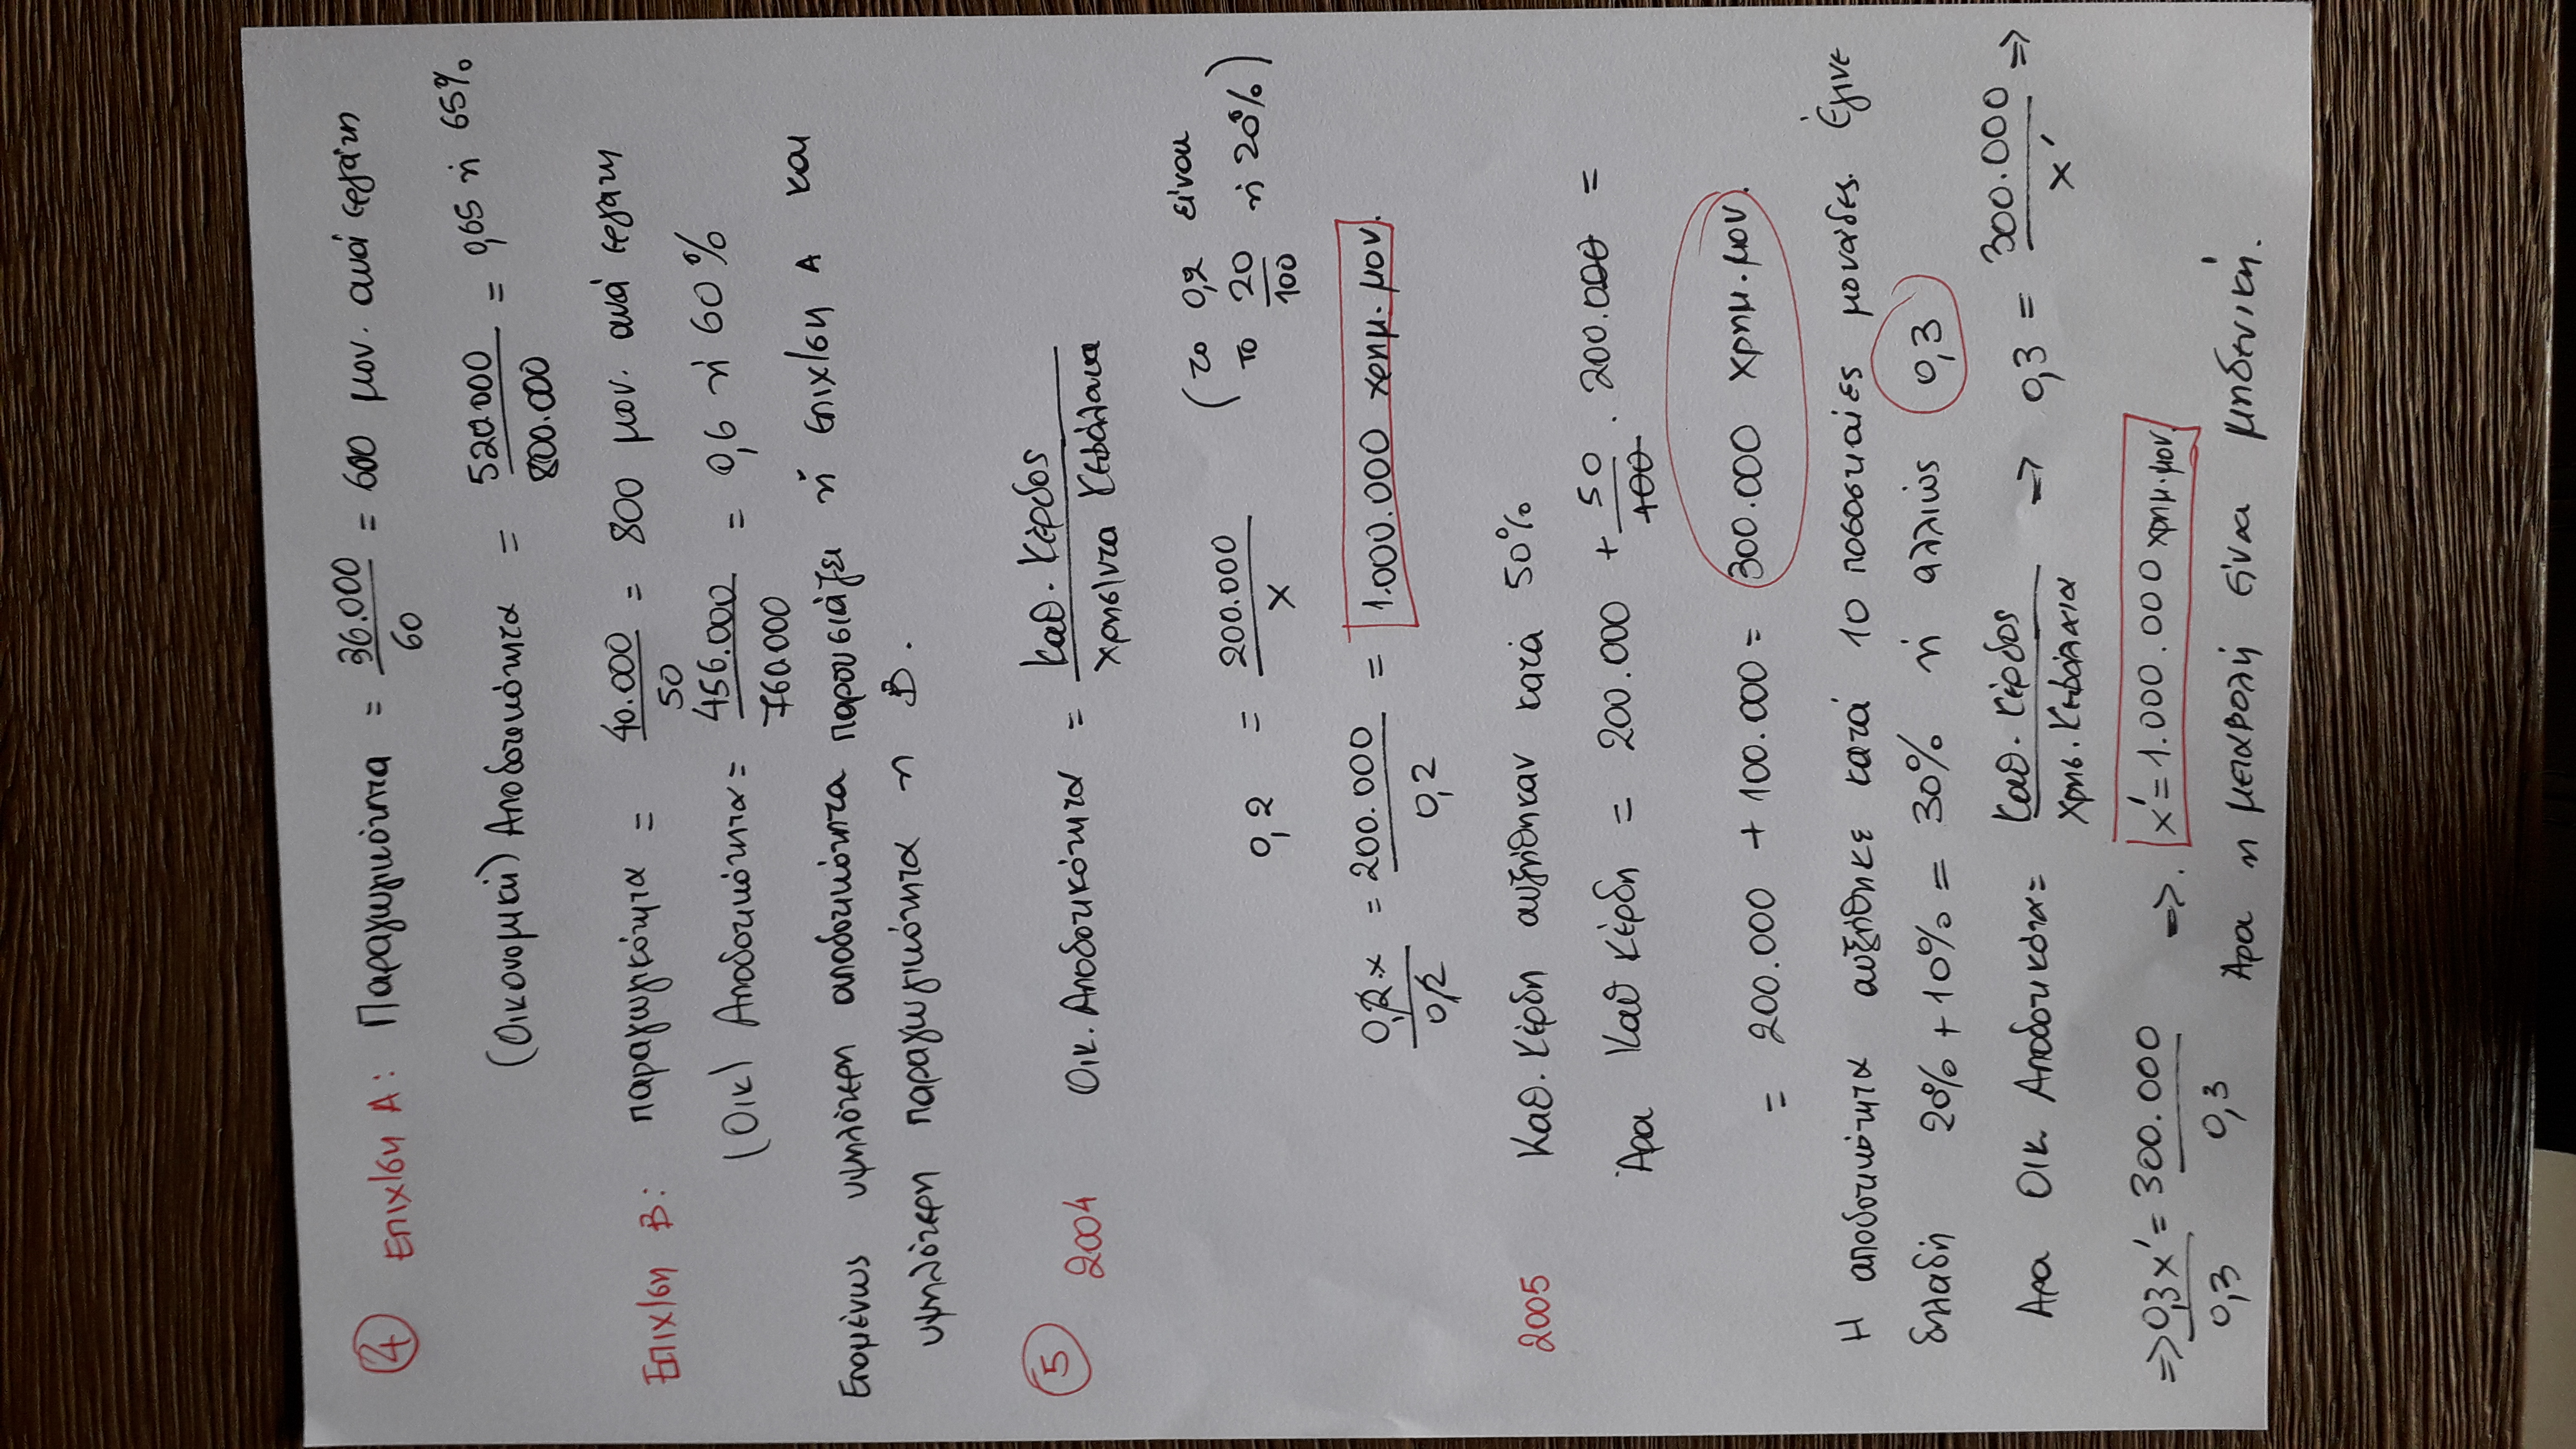 ④ Επιχ/ση Α: Παραγωγικότητα = 36.000 / 60 = 600 μον. ανά εργάτη
(Οικονομική) Αποδοτικότητα = 520.000 / 800.000 = 0,65 ή 65%
Επιχ/ση Β: παραγωγικότητα = 40.000 / 50 = 800 μον. ανά εργάτη
(Οικ) Αποδοτικότητα = 456.000 / 760.000 = 0,6 ή 60%
Επομένως υψηλότερη αποδοτικότητα παρουσιάζει η επιχ/ση Α και
υψηλότερη παραγωγικότητα η Β.
⑤ 2004 Οικ. Αποδοτικότητα = Καθ. Κέρδος / Χρησ/ντα Κεφάλαια
0,2 = 200.000 / x (το 0,2 είναι
το 20/100 ή 20%)
0,2·x / 0,2 = 200.000 / 0,2 = 1.000.000 χρημ. μον.
2005 Καθ. Κέρδη αυξήθηκαν κατά 50%
Άρα Καθ κέρδη = 200.000 + 50/100 . 200.000 =
= 200.000 + 100.000 = 300.000 χρημ. μον.
Η αποδοτικότητα αυξήθηκε κατά 10 ποσοστιαίες μονάδες. Έγινε
δηλαδή 20% + 10% = 30% ή αλλιώς 0,3
Άρα Οικ Αποδοτικότα = Καθ. Κέρδος / Χρησ. Κεφάλαια => 0,3 = 300.000 / x' =>
=> 0,3x' / 0,3 = 300.000 / 0,3 =>. x' = 1.000.000 χρημ. μον.
Άρα η μεταβολή είναι μηδενική.